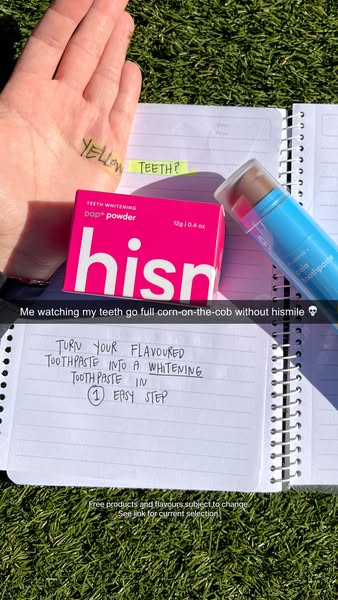 YELLOW
TEETH?
TEETH WHITENING
pap+ powder
12g | 0.4 oz
hisn
toothpaste
Me watching my teeth go full corn-on-the-cob without hismile 💀
TURN YOUR FLAVOURED
TOOTHPASTE INTO A WHITENING
TOOTHPASTE IN
1 EASY STEP
Free products and flavours subject to change.
See link for current selection.